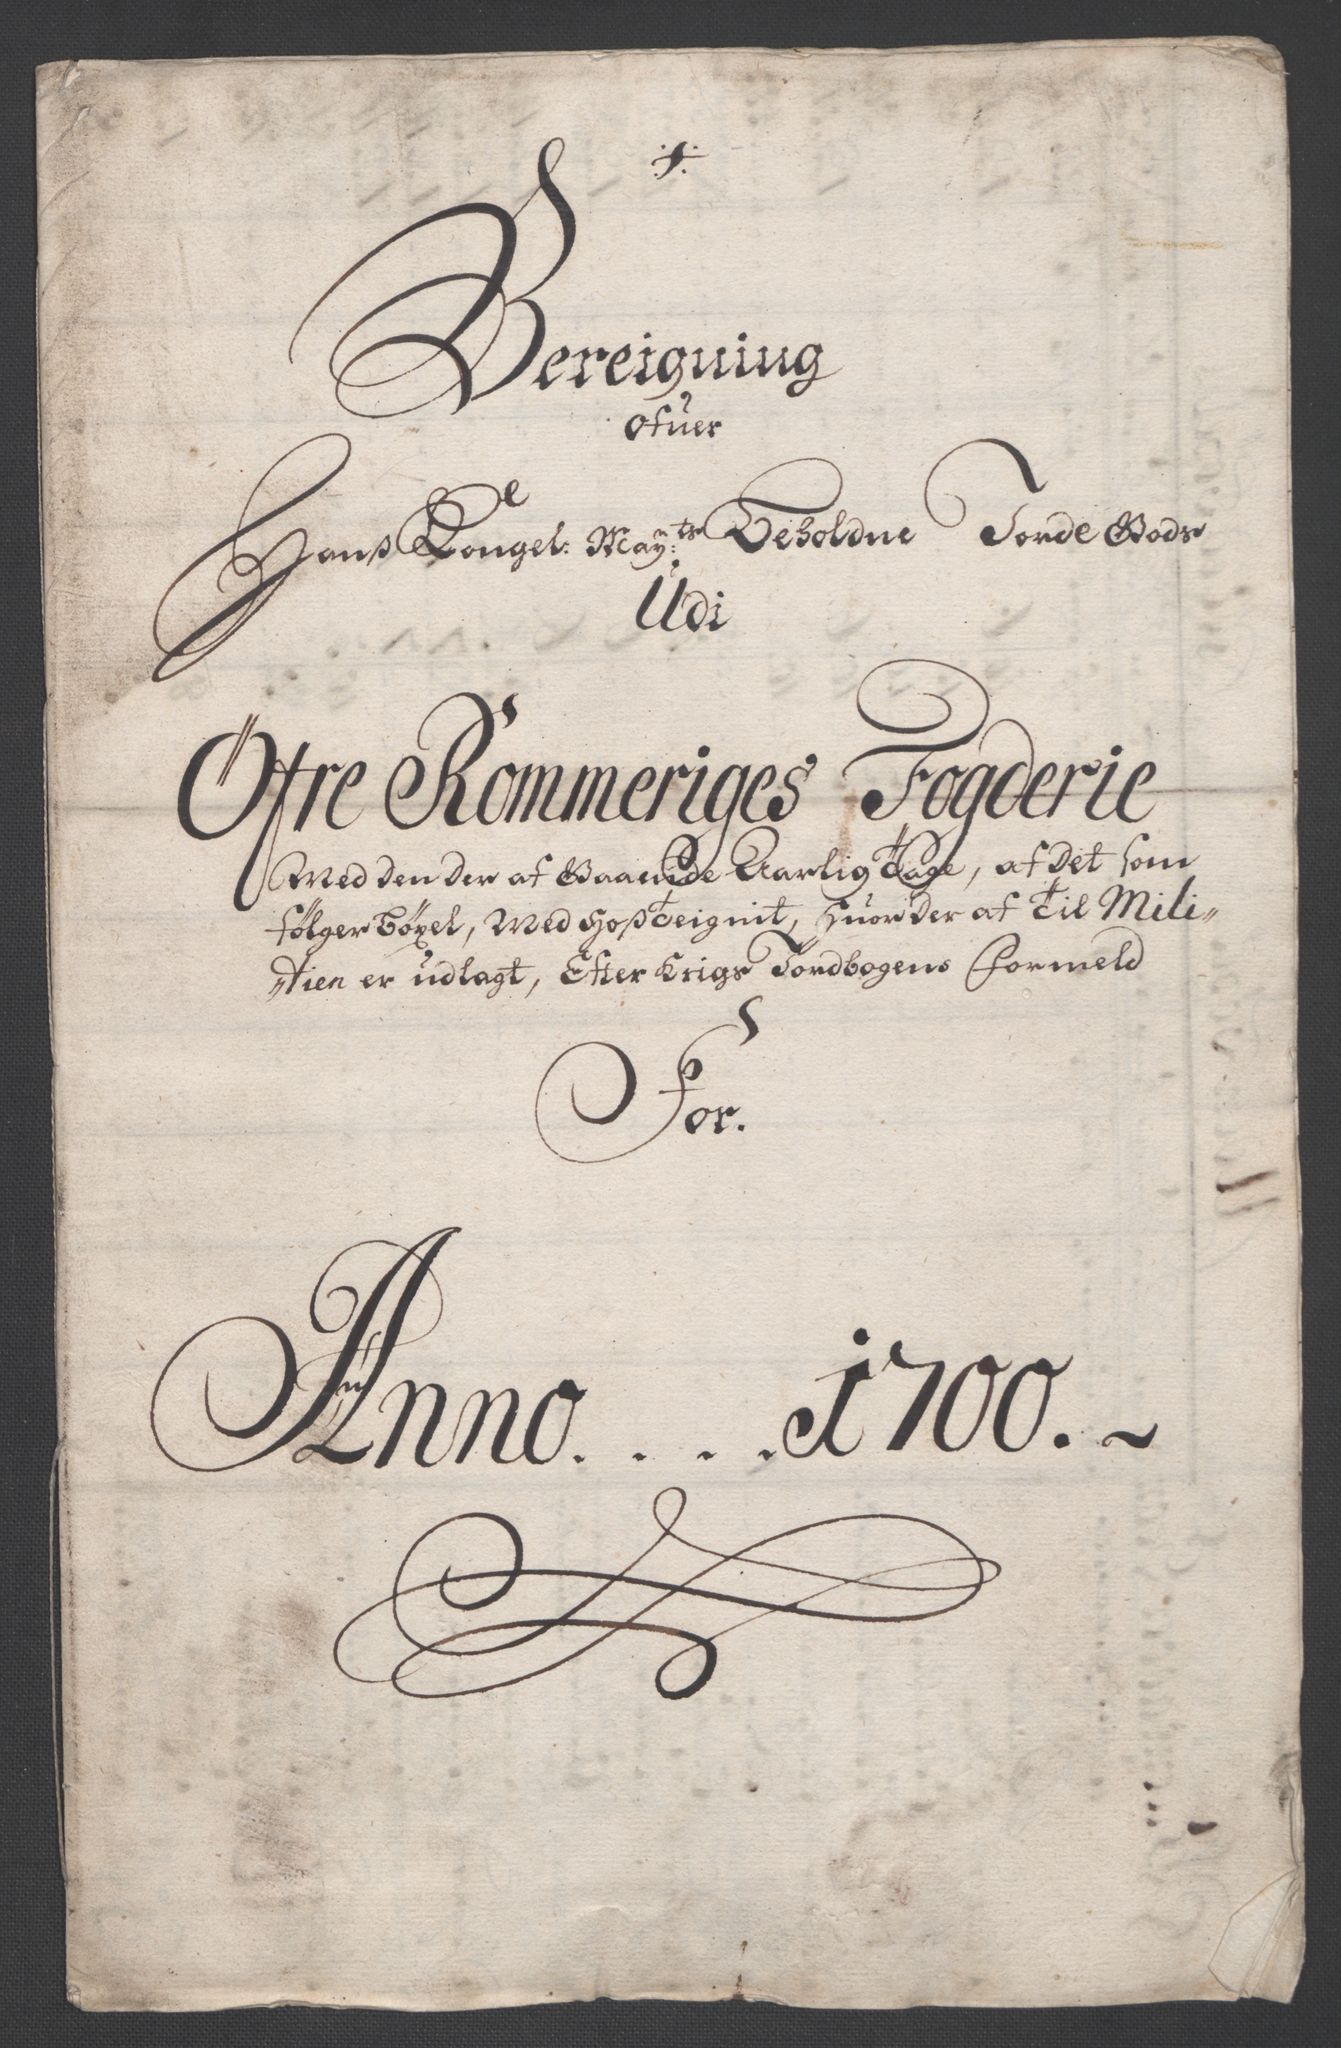 ·1·
Bereigning
ofuer
Hanß Kongel: May:ts Beholdne Jorde Gods
Udi
Öfre Rommeriges Fogderie
Med den der af Gaaende Aarlig Tage, af det som
følger Böxel, Med hoß Teignit, huor der af Til Mili„
„tien er udlagt, Efter Krigs Jordbogens Formeld
For.
Anno. . . . 1700. ~